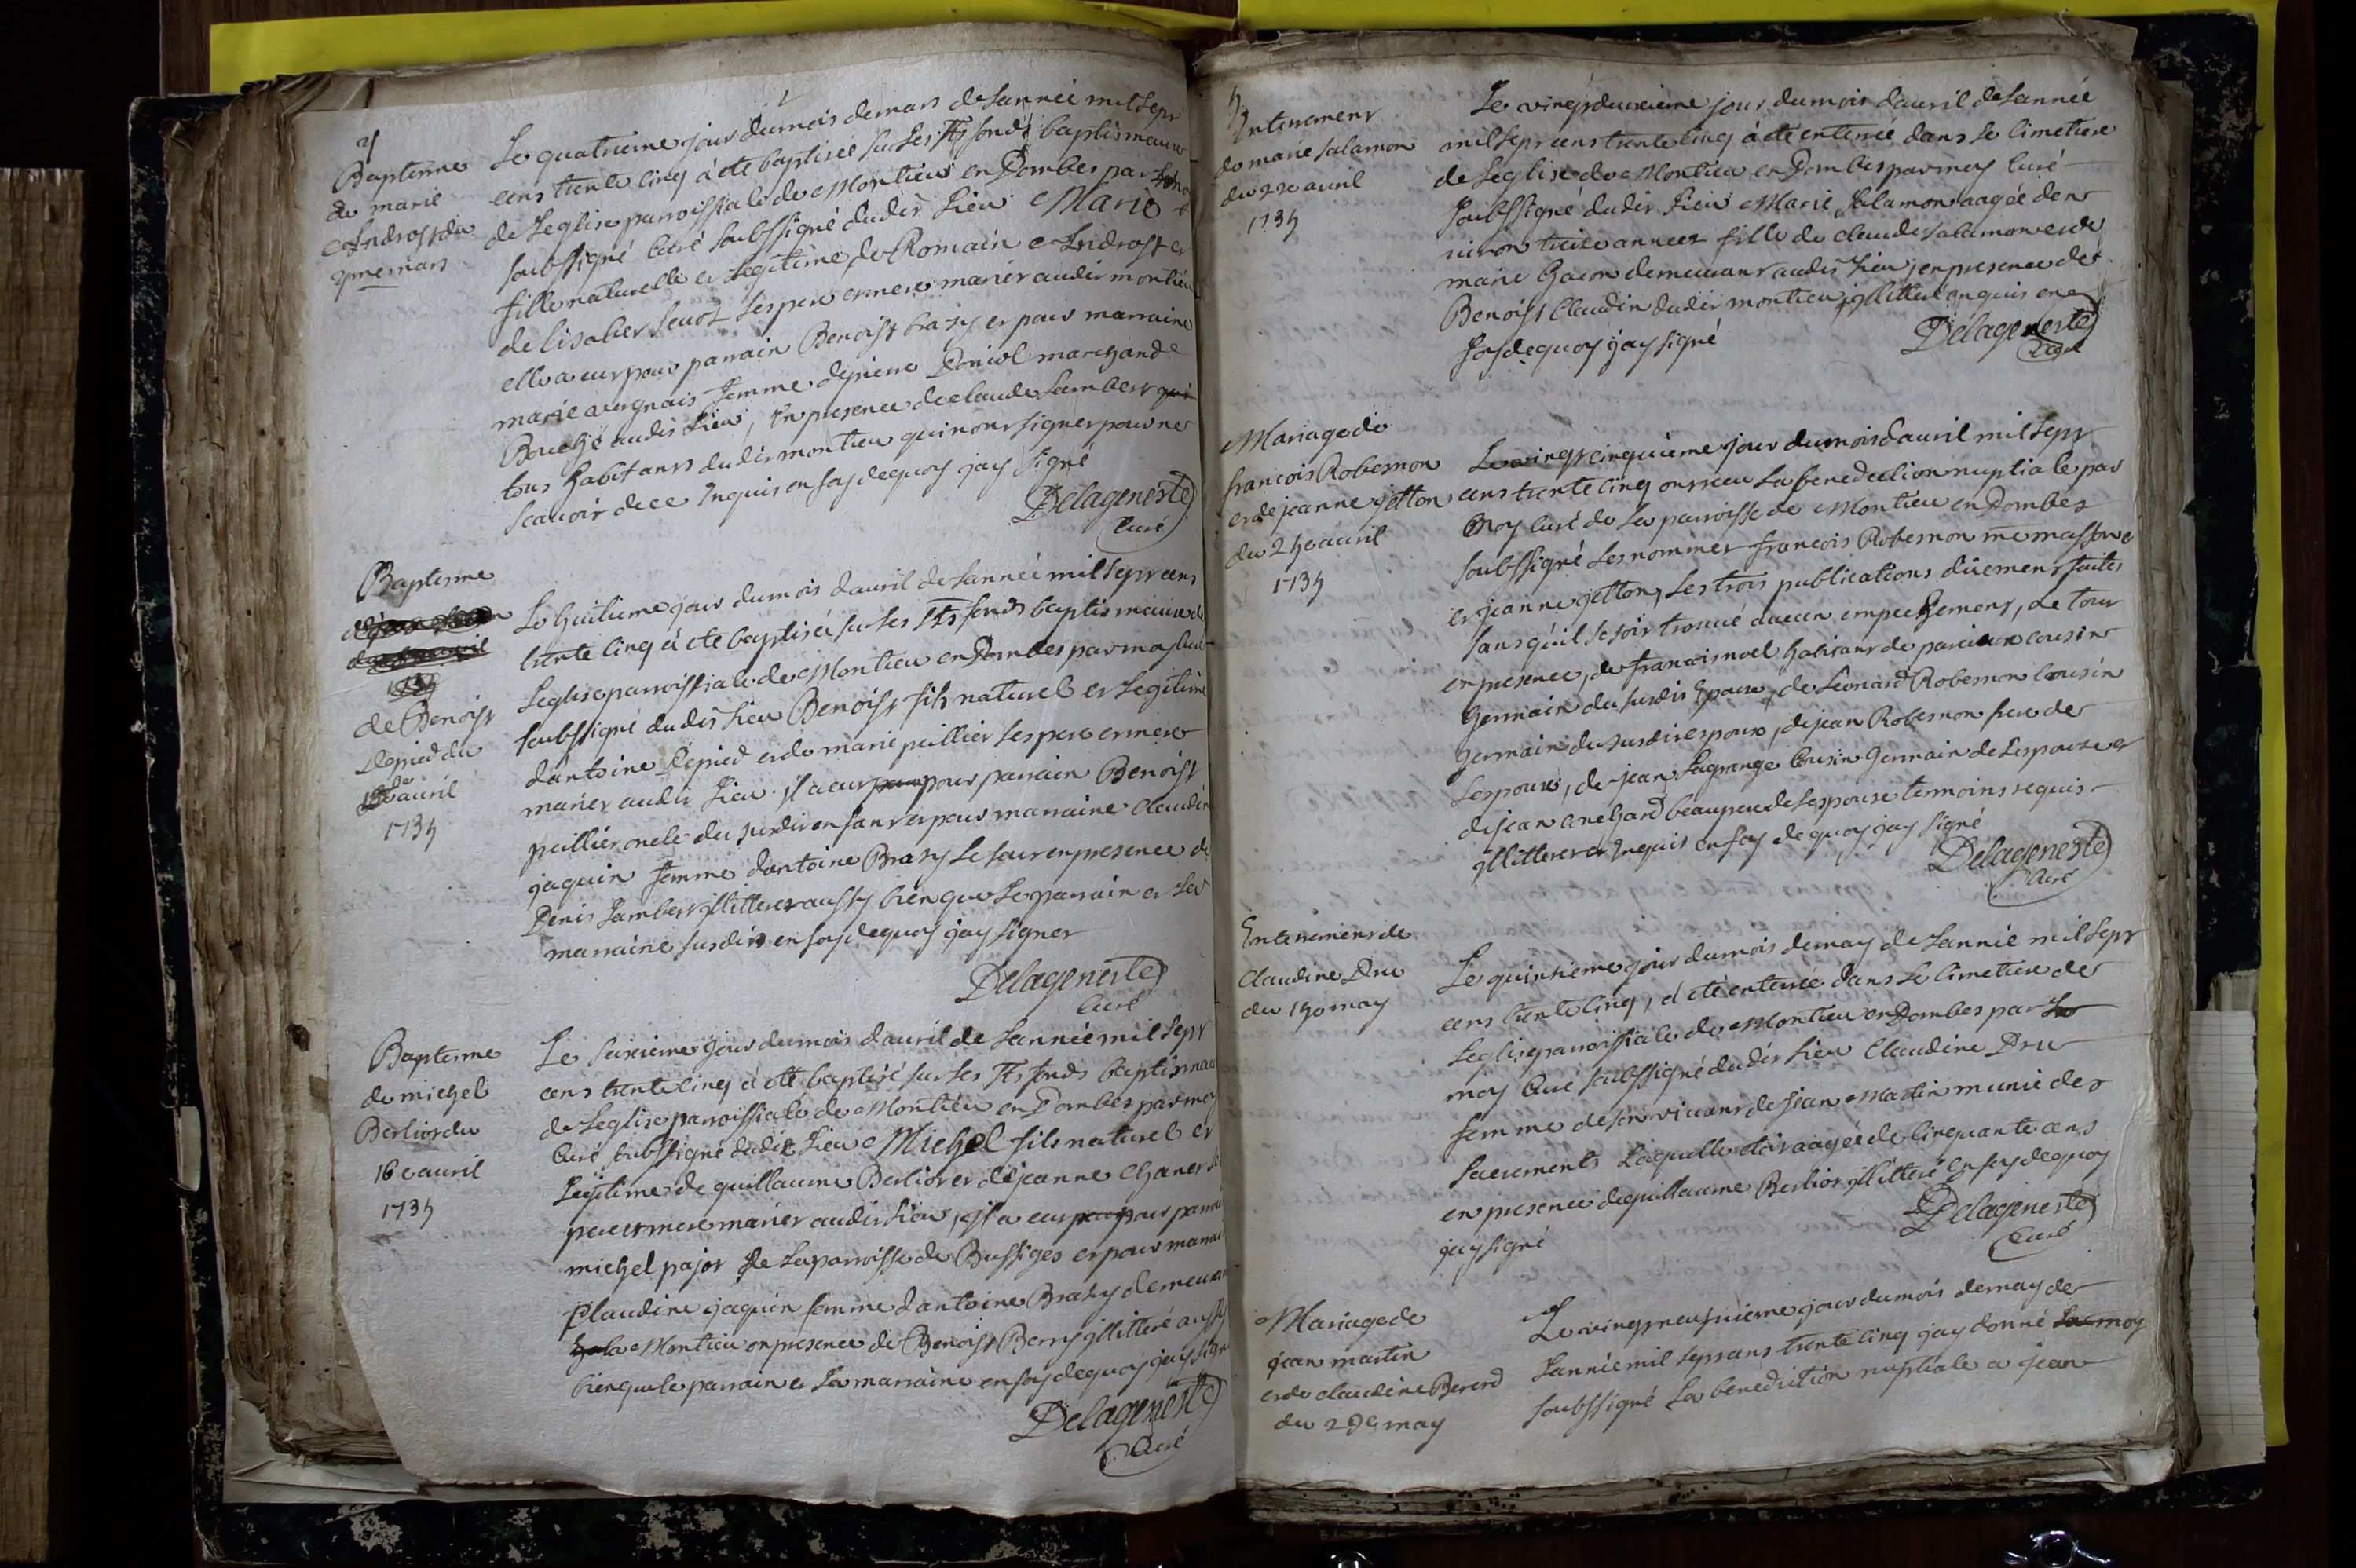 4
Baptesme
de marie
Androst du
4me mars
Le quatrieme jour du mois de mars de lannée mil sept
cens trente cinq à été baptisée sur les sts fonds baptismeaux
de Leglise parroissiale de Montieu en Dombes par
soubssigné Curé soubssigné dudit Lieu Marie
fille naturelle et Legitime de Romain Androst et
de lisabet ses pere et mere mariér audit montieu
elle a eut pour parrain Benoist brazy et pour marraine
marie avegnais femme depierre Doniol marchand
Bouché audit Lieu, En presence de claude Lambert qui
tous habitants dudit montieu qui nont signer pour ne
scavoir de ce Enquis en foy dequoy jay Signé
Delageneste
Curé
Baptesme
1735
de Benoist
Depied du
8e avril
1735
Le huitieme jour du mois davril de Lannée mil sept cens
trente cinq à été baptisé sur les sts fonds baptismeaux de
Leglise parroissiale de Montieu en Dombes par moy Curé
soubssigné dudit Lieu Benoist fils naturel et Legitime
dantoine Depied et de marie peillier ses pere et mere
mariér audit Lieu il a eut pour pour parrain Benoist
peillier oncle du susdit enfant et pour marraine claudine
jaquin femme dantoine Brazy Le tout en presence de
Denis Lambert illitterer aussy bien que Le parrain et La
marraine susdits en foy dequoy jay Signer
Delageneste
Curé
Baptesme
de michel
Berliot du
16e avril
1735
Le seizieme jour du mois davril de Lannée mil sept
cens trente cinq à été baptisé sur Les sts fonds baptismau
de Leglise parroissiale de Montieu en Dombes par moy
Curé soubssigné dudit Lieu Michel fils naturel et
Legitime de guillaume Berliot et de jeanne Chanet
pere et mere mariér audit Lieu, il a eut pour pour parrai
michel pajot de La parroisse de Bussiges et pour marrai
Claudine jaquin femme dantoine Brazy demeuran
Montieu en presence de Benoist Berry illitteré aussy
bien que le parrain et La marraine en foy dequoy jay signé
Delageneste
Curé
5
Enterrement
de marie Salamon
du 22e avril
1735
Le vingt deuxieme jour du mois davril de Lannée
mil sept cens trente cinq à été enterrée dans Le Cimetiere
de Leglise de Montieu en Dombes par moy Curé
soubssigné dudit Lieu Marie Salamon aagée den
viron treize annees fille de claude Salamon et de
marie Gacon demeurant audit Lieu, en presence de
Benoist Claudin dudit montieu illitteré enquis en
foy dequoy jay signé
Delageneste
Curé
Mariage de
francois Robesnon
et de jeanne getton
du 25e avril
1735
Le vingt cinquième jour du mois davril mil sept
cens trente cinq ont receu La benediction nuptiale par
Moy Curé de La parroisse de Montieu en Dombes
soubssigné Les nommer francois Robesnon me masson
et jeanne getton, Les trois publications düement faites
sans qu'il se soit trouvé aucun empechement, Le tout
en presence, de francois noel habitant de parcieux cousin
Germain du susdit Epoux, de Leonard Robesnon Cousin
Germain du susdit espoux, de jean Robesnon frere de
Lespoux, de jean Lagrange Cousin Germain de Lespouse et
de jean anchard beaupere de Lespouse temoins requis
illitterer et Enquis en foy de quoy jay Signé
Delageneste
Curé
Enterrement de
Claudine Dru
du 15e may
Le quinzieme jour du mois de may de Lannée mil Sept
cens trente cinq, à été enterrée dans Le Cimetiere de
Leglise parroissiale de Montieu en Dombes par
moy Curé soubssigné dudit Lieu Claudine Dru
femme de son vivant de jean Martin munie des
Sacrements Laquelle etoit aagée de Cinquante ans
en presence de guillaume Berliot illitteré En foy dequoy
jay signé
Delageneste
Curé
Mariage de
jean martin
et de claudine Bererd
du 29e may
Le vingt neufvieme jour du mois de may de
Lannée mil sept cens trente cinq jay donné moy
soubssigné La benediction nuptiale a jean